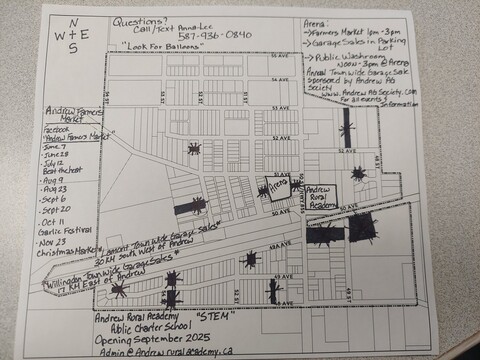 N
W E
S
Questions?
Call/Text Anna-Lee
587-936-0840
"Look For Balloons"
Arena:
→ Farmers Market 1pm-3pm
→ Garage Sales in Parking
Lot
→ Public Washroom
Noon-3pm @ Arena
Annual Town wide Garage Sale
sponsored by Andrew AG
Society
www.Andrew AG Society.Com
For all events &
Information
Andrew Farmers
Market
Facebook
"Andrew Farmers Market"
June 7
• June 28
• July 12
Beat the heat
• Aug 9
• Aug 23
• Sept 6
• Sept 20
• Oct 11
Garlic Festival
• Nov 23
Christmas Market
55 AVE
53 AVE
52 AVE
52 AVE
51 AVE
50 AVE
50 AVE
49A AVE
49 AVE
48 ST
52 ST
51 ST
Arena
Andrew
Rural
Academy
"Lamont Town wide Garage Sales"
30 KM South West of Andrew
"Willingdon Town Wide Garage Sales"
17 KM East of Andrew
Andrew Rural Academy "STEM"
Public Charter School
Opening September 2025
Admin@Andrewruralacademy.ca